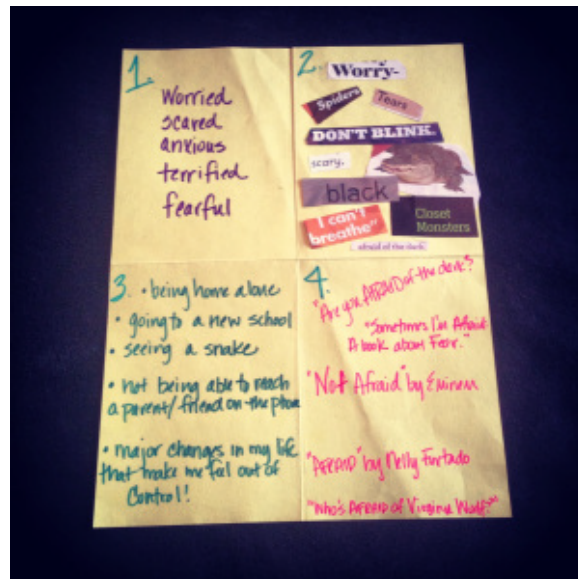 1.
Worried
scared
anxious
terrified
fearful
2.
Worry-
Spiders
Tears
DON'T BLINK.
scary.
black
I can't
breathe"
Closet
Monsters
afraid of the dark
3. • being home alone
• going to a new school
• seeing a snake
• not being able to reach
a parent/friend on the phone
• major changes in my life
that make me feel out of
Control!
4.
"Are you AFRAID of the dark?"
"Sometimes I'm Afraid:
A book about Fear."
"Not Afraid" by Eminem
"AFRAID" by Nelly Furtado
"Who's AFRAID of Virginia Woolf?"